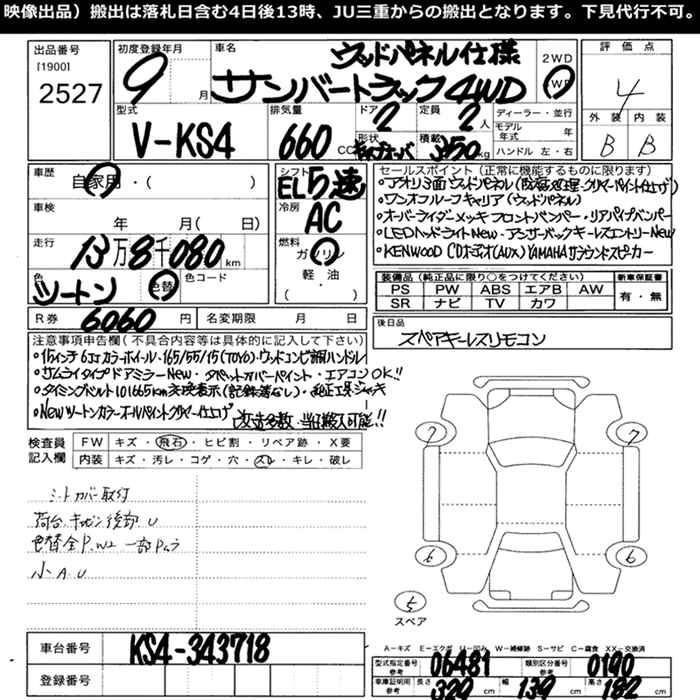 映像出品）搬出は落札日含む4日後13時、JU三重からの搬出となります。下見代行不可。
出品番号
[1900]
2527
初度登録年月
9
月
車名
ウッドパネル仕様
サンバートラック 4WD
2WD
評価点
4
外装 内装
B B
型式
V-KS4
排気量
660
CC
ドア
2
形状
定員
2
人
積載
350
kg
ディーラー・並行
モデル年式 年
ハンドル 左・右
車歴
自家用・( )
車検
年 月( 日)
走行
13万8千080 km
色
ツートン
色替
色コード
R券
6060 円
名変期限 月 日
シフト
EL5速
冷房
AC
燃料
ガソリン
軽・油
( )
セールスポイント（正常に機能するものに限ります）
・アオリ3面ウッドパネル
・ワンオフルーフキャリア(ウッドパネル)
・オーバーライダーメッキフロントバンパー・リアパイプバンパー
・LEDヘッドライトNew・アンサーバックキーレスエントリーNew
・KENWOOD CDオーディオ(AUX) YAMAHAサラウンドスピーカー
装備品（純正品に限り○をつけてください）
PS PW ABS エアB AW
SR ナビ TV カワ
新車保証書
有・無
後日品
スペアキーレスリモコン
注意事項申告欄（不具合内容等は具体的に記入して下さい）
・15インチ6Jカラーホイール・165/55/15(TOYO)・ウッドコンビ調ハンドル
・サムライタイプドアミラーNew・タペットカバーペイント・エアコンOK!!
・タイミングベルト101665km交換表示(記録簿なし)・純正工具ジャッキ
・Newツートンカラーオールペイントクリヤー仕上げ
改造多数・当日搬入可能!!
検査員記入欄
FW キズ・飛石・ヒビ割・リペア跡・X要
内装 キズ・汚レ・コゲ・穴・スレ・キレ・破レ
シートカバー取付
荷台キャビン後部U
色替全P.W2 一部Pムラ
小A.U
7
7
6
6
5
スペア
車台番号
KS4-343718
登録番号
A－キズ E－エクボ U－凹み W－補修跡 S－サビ C－腐食 XX－交換済
型式指定番号
参考
06481
類別区分番号
参考
0190
車庫証明用
参考
長さ
329 cm
幅
139 cm
高さ
182 cm